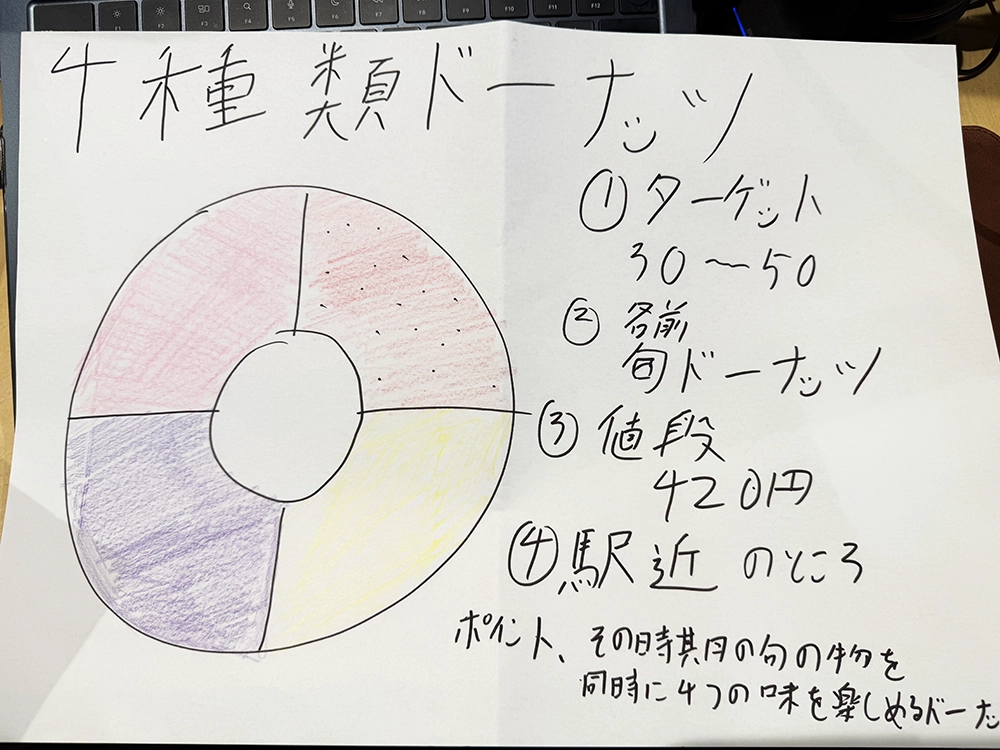 4種類ドーナッツ
①ターゲット
30〜50
②名前
旬ドーナッツ
③値段
420円
④駅近のところ
ポイント、その時期月の旬の物を
同時に4つの味を楽しめるドーナッ